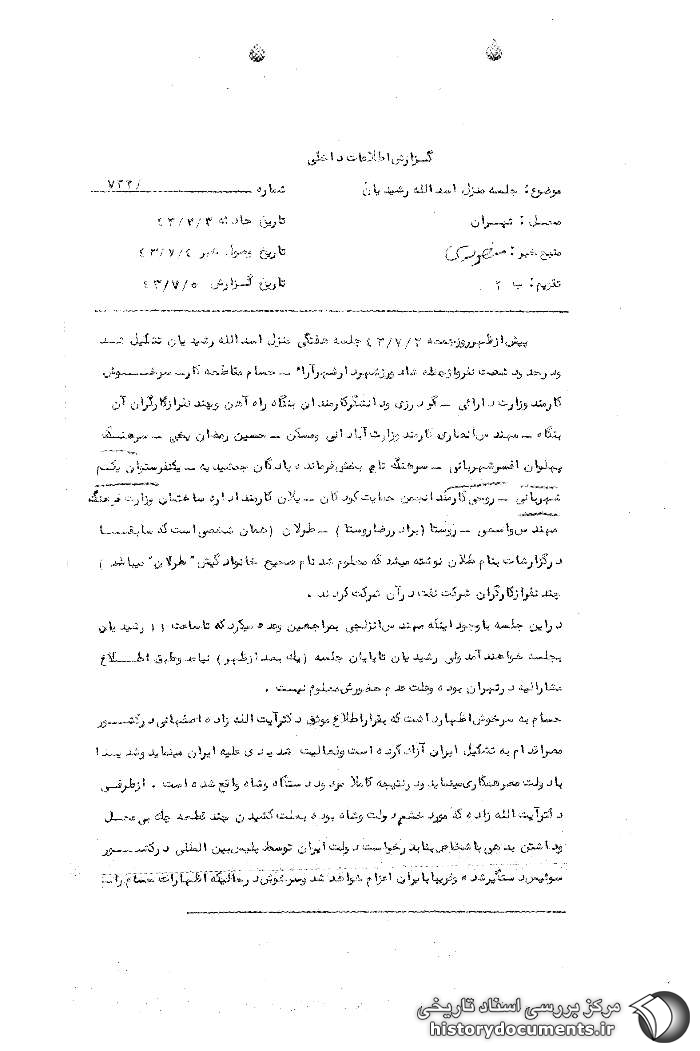 گزارش اطلاعات داخلی
موضوع : جلسه منزل اسدالله رشیدیان
شماره ۷۲۲/
محل : تهران
تاریخ حادثه ۴۳/۷/۳
منبع خبر : منصوری
تاریخ وصول خبر ۴۳/۷/٤
تقویم : ب ۲
تاریخ گزارش ۴۳/۷/۵
پیش از ظهر روز جمعه ۴۳/۷/۳ جلسه هفتگی منزل اسدالله رشیدیان تشکیل شد
و در حدود شصت نفر از جمله شاه ورزشهر ارشهرآراء – حسام مقاطعه کار – سرخوش
کارمند وزارت دارائی – گودرزی و دانشگر کارمندان بنگاه راه آهن و چند نفر از کارگران آن
بنگاه – مهندس انصاری کارمند وزارت آبادانی و مسکن – حسین رمضان یخی – سرهنگ
پهلوان افسر شهربانی – سرهنگ تاج بخش فرمانده پادگان جمشیدیه – یکنفر ستوان یکم
شهربانی – روحی کارمند انجمن حمایت کودکان – یلان کارمند اداره ساختمان وزارت فرهنگ
مهندس واسعی – روستا (برادر رضا روستا) – طرلان (همان شخصی است که سابقا
در گزارشات بنام طلان نوشته میشد که معلوم شد نام صحیح خانوادگیش "طرلان" میباشد )
چند نفر از کارگران شرکت نفت در آن شرکت کردند .
در این جلسه با وجود اینکه مهندس انزلچی بمراجعین وعده میکرد که تا ساعت ۱۱ رشیدیان
بجلسه خواهند آمد ولی رشیدیان تا پایان جلسه (یک بعد از ظهر) نیامد و طبق اطلاع
مشارالیه در تهران بوده و علت عدم حضورش معلوم نیست .
حسام به سرخوش اظهار داشت که بقرار اطلاع موثق دکتر آیت الله زاده اصفهانی در کشور
مصر اقدام به تشکیل ایران آزاد کرده است و فعالیت شدیدی علیه ایران مینماید و شدیدا
با دولت مصر همکاری مینماید و در نتیجه کاملا مردود دستگاه و شاه واقع شده است . از طرفی
دکتر آیت الله زاده که مورد خشم دولت و شاه بوده بعلت کشیدن چند قطعه چک بی محل
و داشتن بدهی باشخاص بنابدرخواست دولت ایران توسط پلیس بین المللی در کشور
سوئیس دستگیر شده و قریبا بایران اعزام خواهد شد و سرخوش در حالیکه اظهارات حسام را
مرکز بررسی اسناد تاریخی
historydocuments.ir